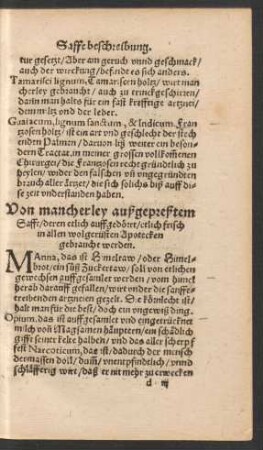 Safft beschreibung.
tur gesetzt/ Aber am geruch vnnd geschmack/
auch der wirckung/ befindt es sich anders.
Tamarisci lignum, Tamariscen holtz/ wirt man
cherley gebraucht/ auch zu trinckgeschirren/
darin man halts für ein fast krefftige artznei/
dem miltz vnd der leber.
Guaiacum, lignum sanctum, & Indicum, Fran
zosen holtz/ ist ein art vnd geschlecht der stech
enden Palmen/ daruon liß weiter ein beson-
dern Tractat, in meiner grossen vollkom̃nen
Chirurgei/ die Franzosen recht gründtlich zu
heylen/ wider den falschen vñ vngegründten
brauch aller ärtzet/ die sich solichs biß auff di-
se zeit vnderstanden haben.
Von mancherley außgepreßtem
Safft/ deren etlich auff gedört/ etlich frisch
in allen wolgerüsten Apotecken
gebraucht werden.
MAnna, das ist Himelraw/ oder Himel-
brot/ ein süß Zuckertaw/ soll von etlichen
gewechsen auffgesamlet werden/ vom himel
herab darauff gefallen/ wirt vnder die sanffte
treibenden artzneien gezelt. Die kömlecht ist/
halt man für die best/ doch ein vngewiß ding.
Opium, das ist auffgesamlet vnd eingetrückner
milch von Magsamen häuptern/ ein schädlich
gifft seiner kelte halben/ vnd das aller scherpf
fest Narcoticum, das ist/ dadurch der mensch
dermassen doll/ dum̃/ vnentpfindtlich/ vnnd
schläfferig wirt/ daß er nit mehr zu erwecken
d iij